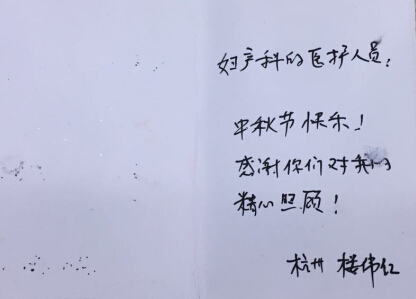 妇产科的医护人员:
中秋节快乐!
感谢你们对我的
精心照顾!
杭州 楼伟红